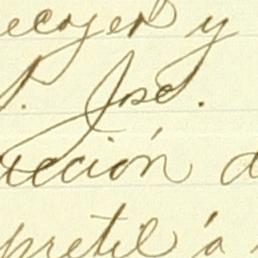 ecoger y
P. José.
rección d
pretil á